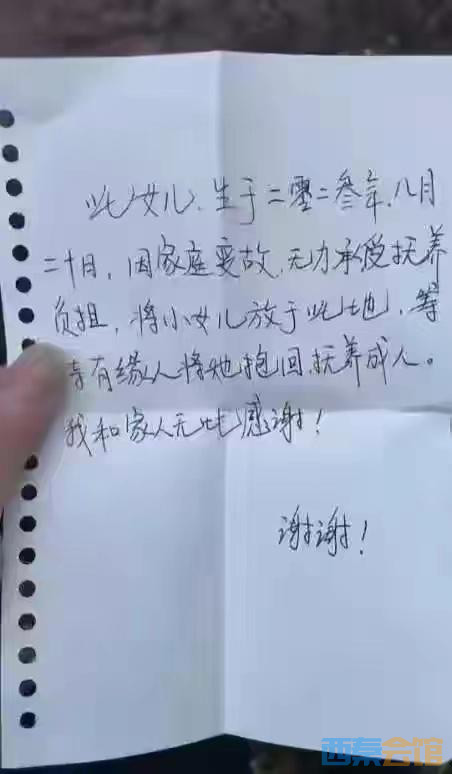 此女儿、生于二零二叁年、八月
二十日，因家庭变故，无力承受抚养
负担，将小女儿放于此地，等
有缘人将她抱回、抚养成人。
我和家人无比感谢！
谢谢！
西秦会馆